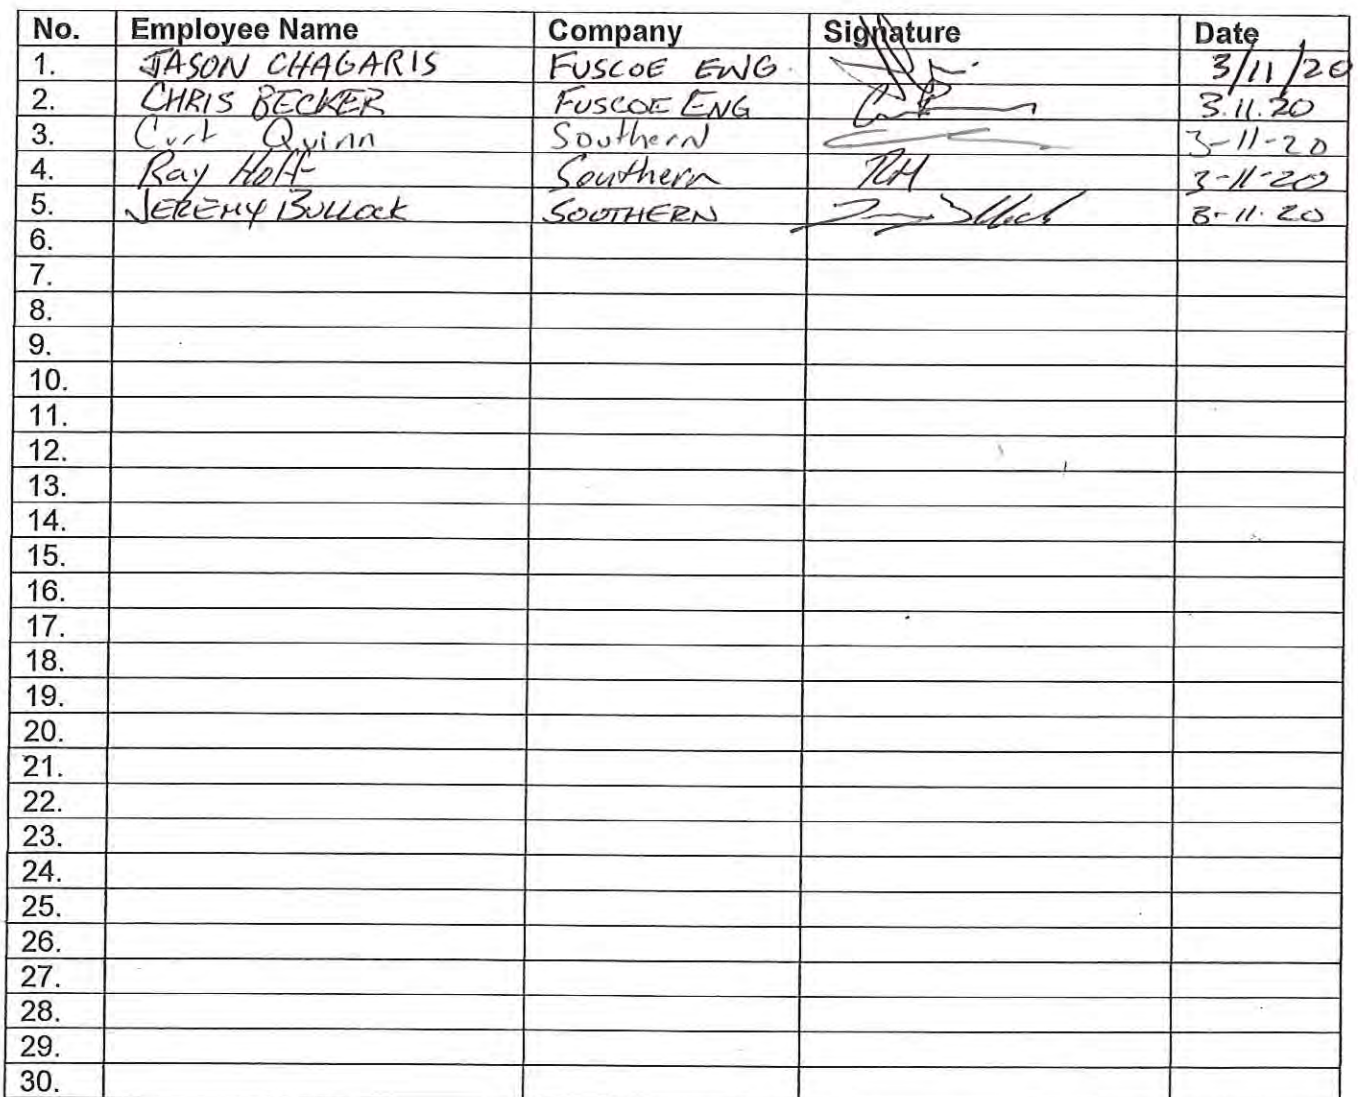 No. Employee Name Company Signature Date
1. JASON CHAGARIS FUSCOE ENG. 3/11/20
2. CHRIS BECKER FUSCOE ENG 3.11.20
3. Curt Quinn Southern 3-11-20
4. Ray Hoff Southern RH 3-11-20
5. JEREMY BULLOCK SOUTHERN 3-11-20
6.
7.
8.
9.
10.
11.
12.
13.
14.
15.
16.
17.
18.
19.
20.
21.
22.
23.
24.
25.
26.
27.
28.
29.
30.